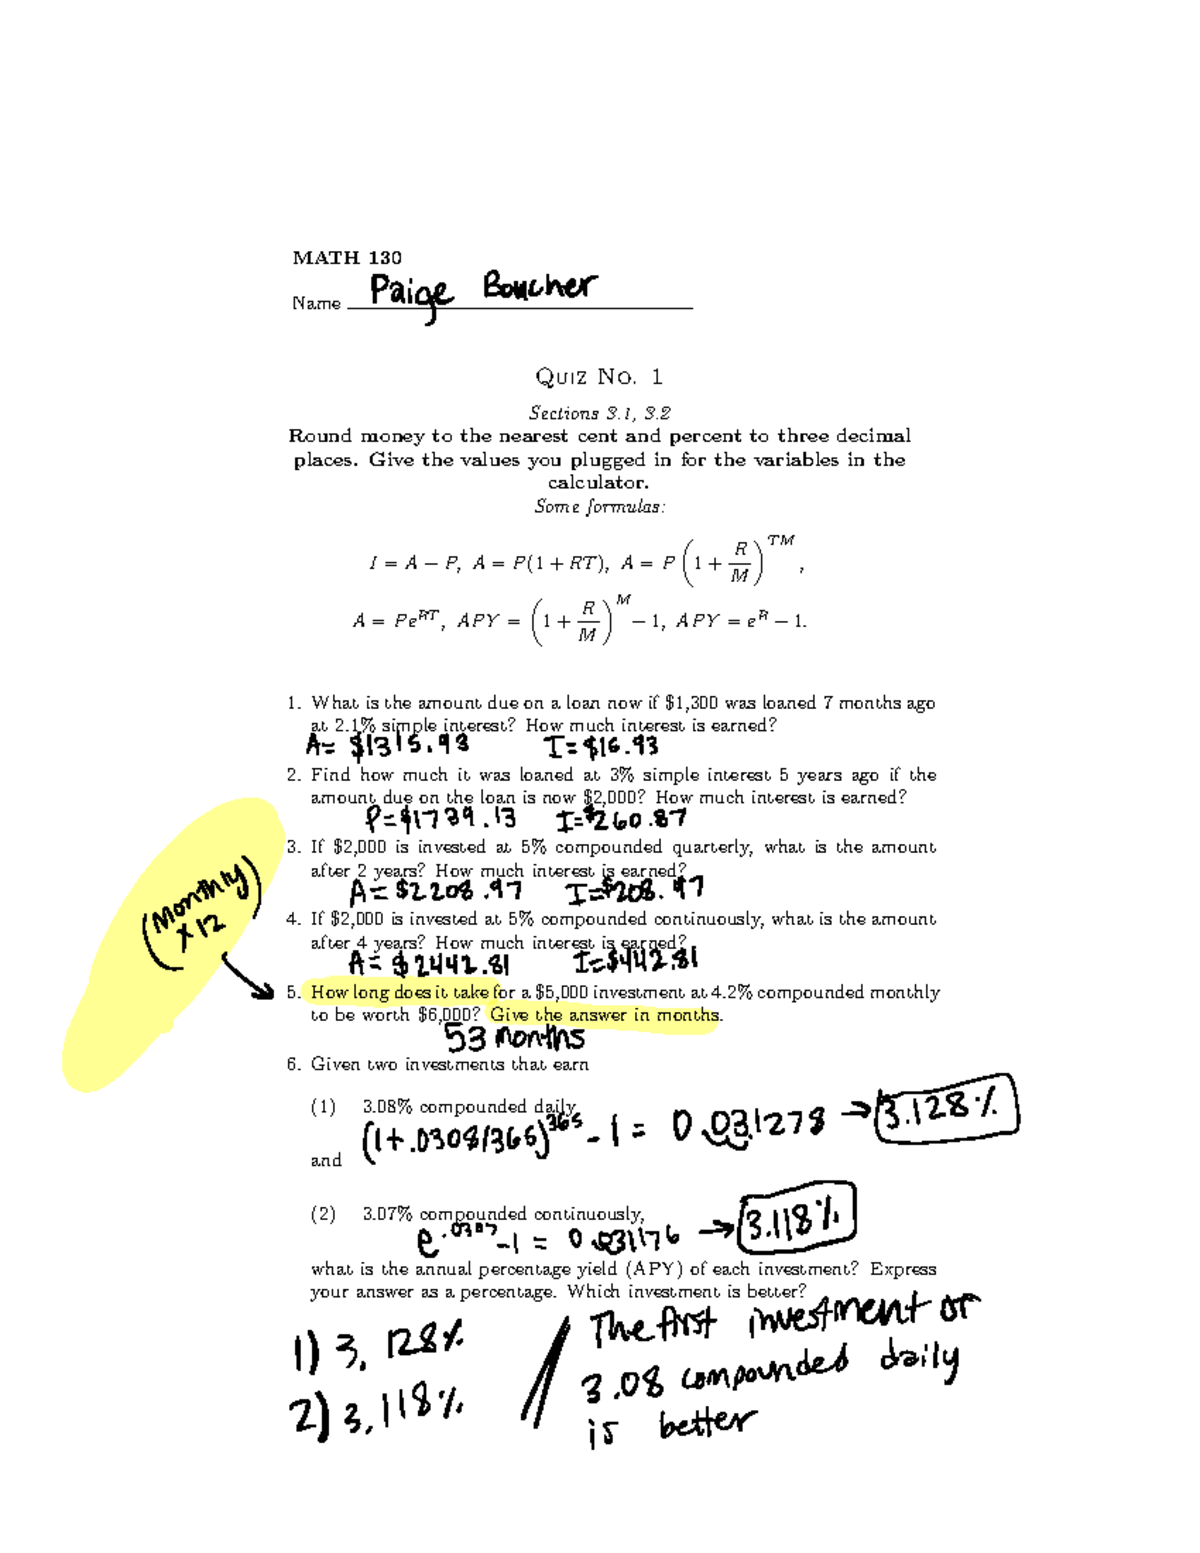 MATH 130
Name Paige Boucher
Quiz No. 1
Sections 3.1, 3.2
Round money to the nearest cent and percent to three decimal
places. Give the values you plugged in for the variables in the
calculator.
Some formulas:
I = A − P, A = P(1 + RT), A = P(1 + R/M)^TM,
A = Pe^RT, APY = (1 + R/M)^M − 1, APY = e^R − 1.
1. What is the amount due on a loan now if $1,300 was loaned 7 months ago
at 2.1% simple interest? How much interest is earned?
A= $1315.93 I=$16.93
2. Find how much it was loaned at 3% simple interest 5 years ago if the
amount due on the loan is now $2,000? How much interest is earned?
P=$1739.13 I=$260.87
3. If $2,000 is invested at 5% compounded quarterly, what is the amount
after 2 years? How much interest is earned?
A=$2208.97 I=$208.97
4. If $2,000 is invested at 5% compounded continuously, what is the amount
after 4 years? How much interest is earned?
A=$2442.81 I=$442.81
(Monthly)
x12
5. How long does it take for a $5,000 investment at 4.2% compounded monthly
to be worth $6,000? Give the answer in months.
53 months
6. Given two investments that earn
(1) 3.08% compounded daily
(1+.0308/365)^365 -1 = 0.031278 → 3.128%
and
(2) 3.07% compounded continuously,
e^.0307 -1 = 0.031176 → 3.118%
what is the annual percentage yield (APY) of each investment? Express
your answer as a percentage. Which investment is better?
1) 3.128%
2) 3.118%
The first investment or
3.08 compounded daily
is better